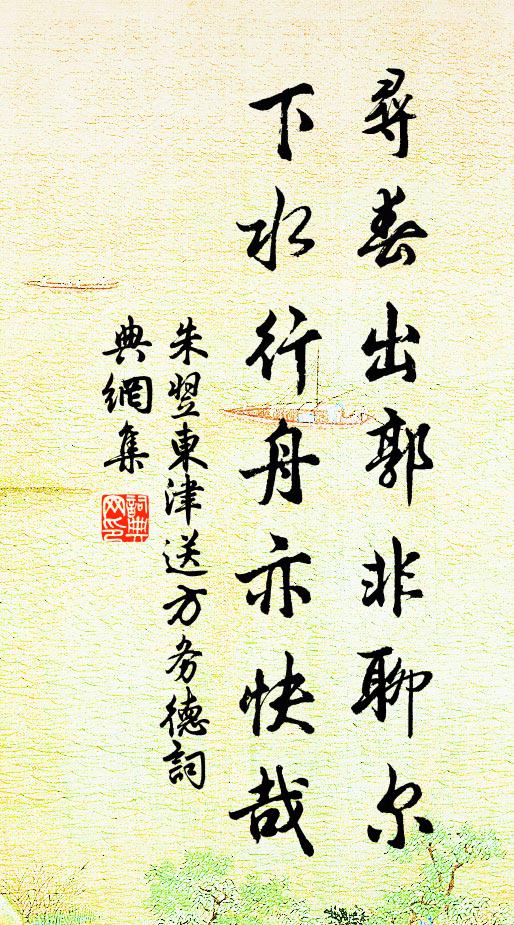 尋春出郭非聊尔
下水行舟亦快哉
朱翌東津送方务德詞
典網集
詞典网印